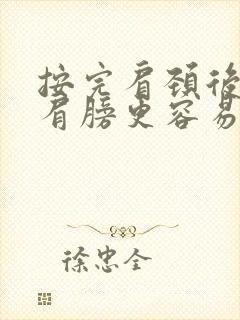 按完肩颈后
肩膀更容易
徐忠全